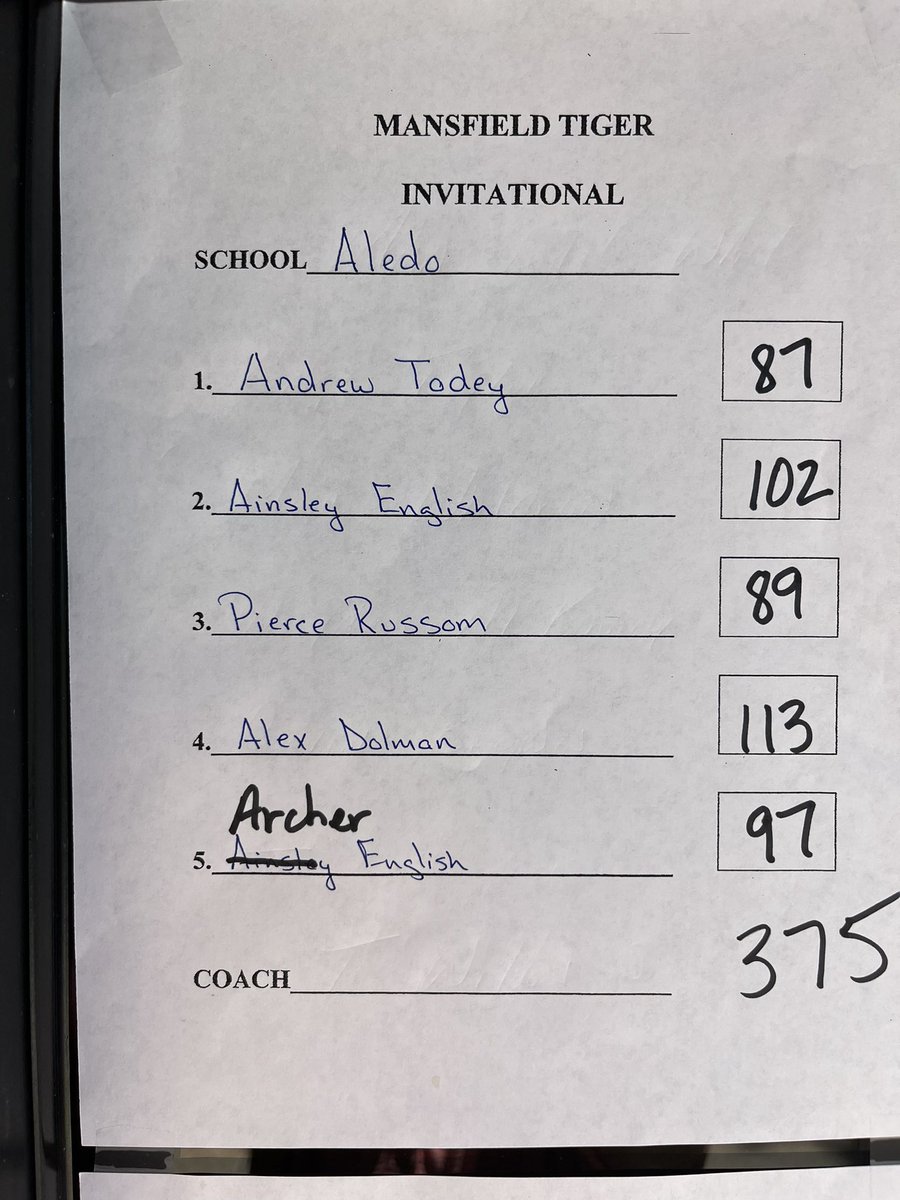 MANSFIELD TIGER
INVITATIONAL
SCHOOL Aledo
1. Andrew Todey 87
2. Ainsley English 102
3. Pierce Russom 89
4. Alex Dolman 113
Archer
5. Ainsley English 97
375
COACH